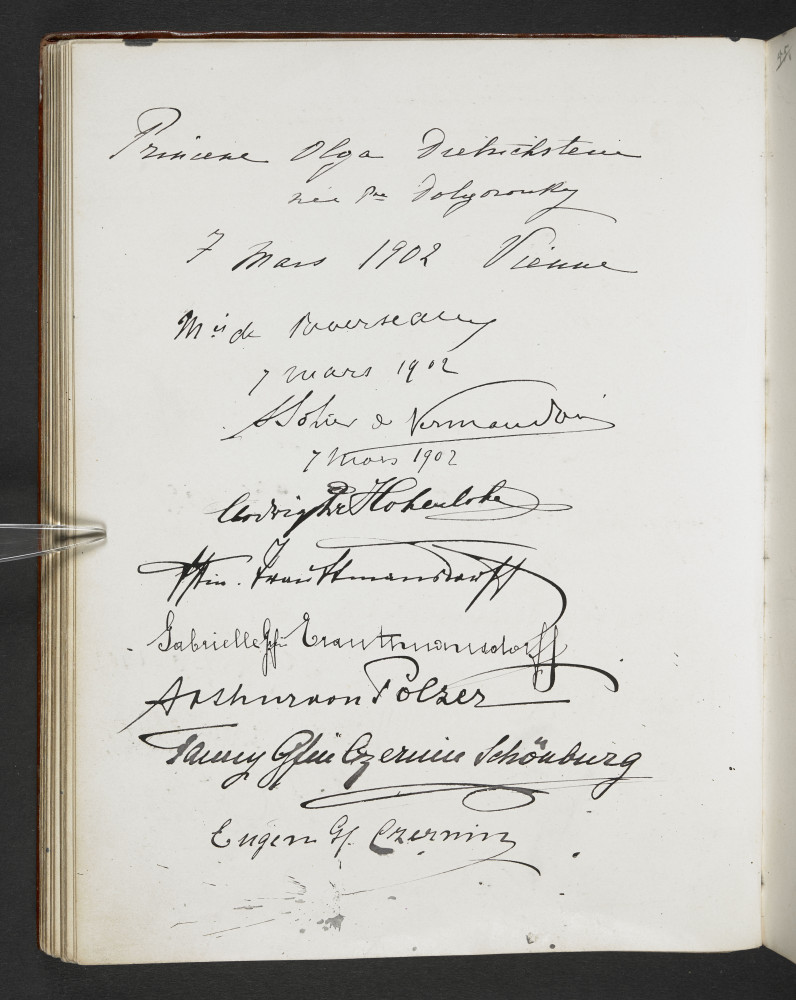 Princesse Olga Dietrichstein
née Pce Dolgorouky
7 Mars 1902 Vienne
Mis de Reverseaux
7 mars 1902
A Sohier de Vermandois
7 Mars 1902
Ludwig Pr Hohenlohe
Fstin. Trauttmansdorff
Gabrielle Gfin Trauttmansdorff
Arthur von Polzer
Fanny Gfin Czernin Schönburg
Eugen Gf. Czernin